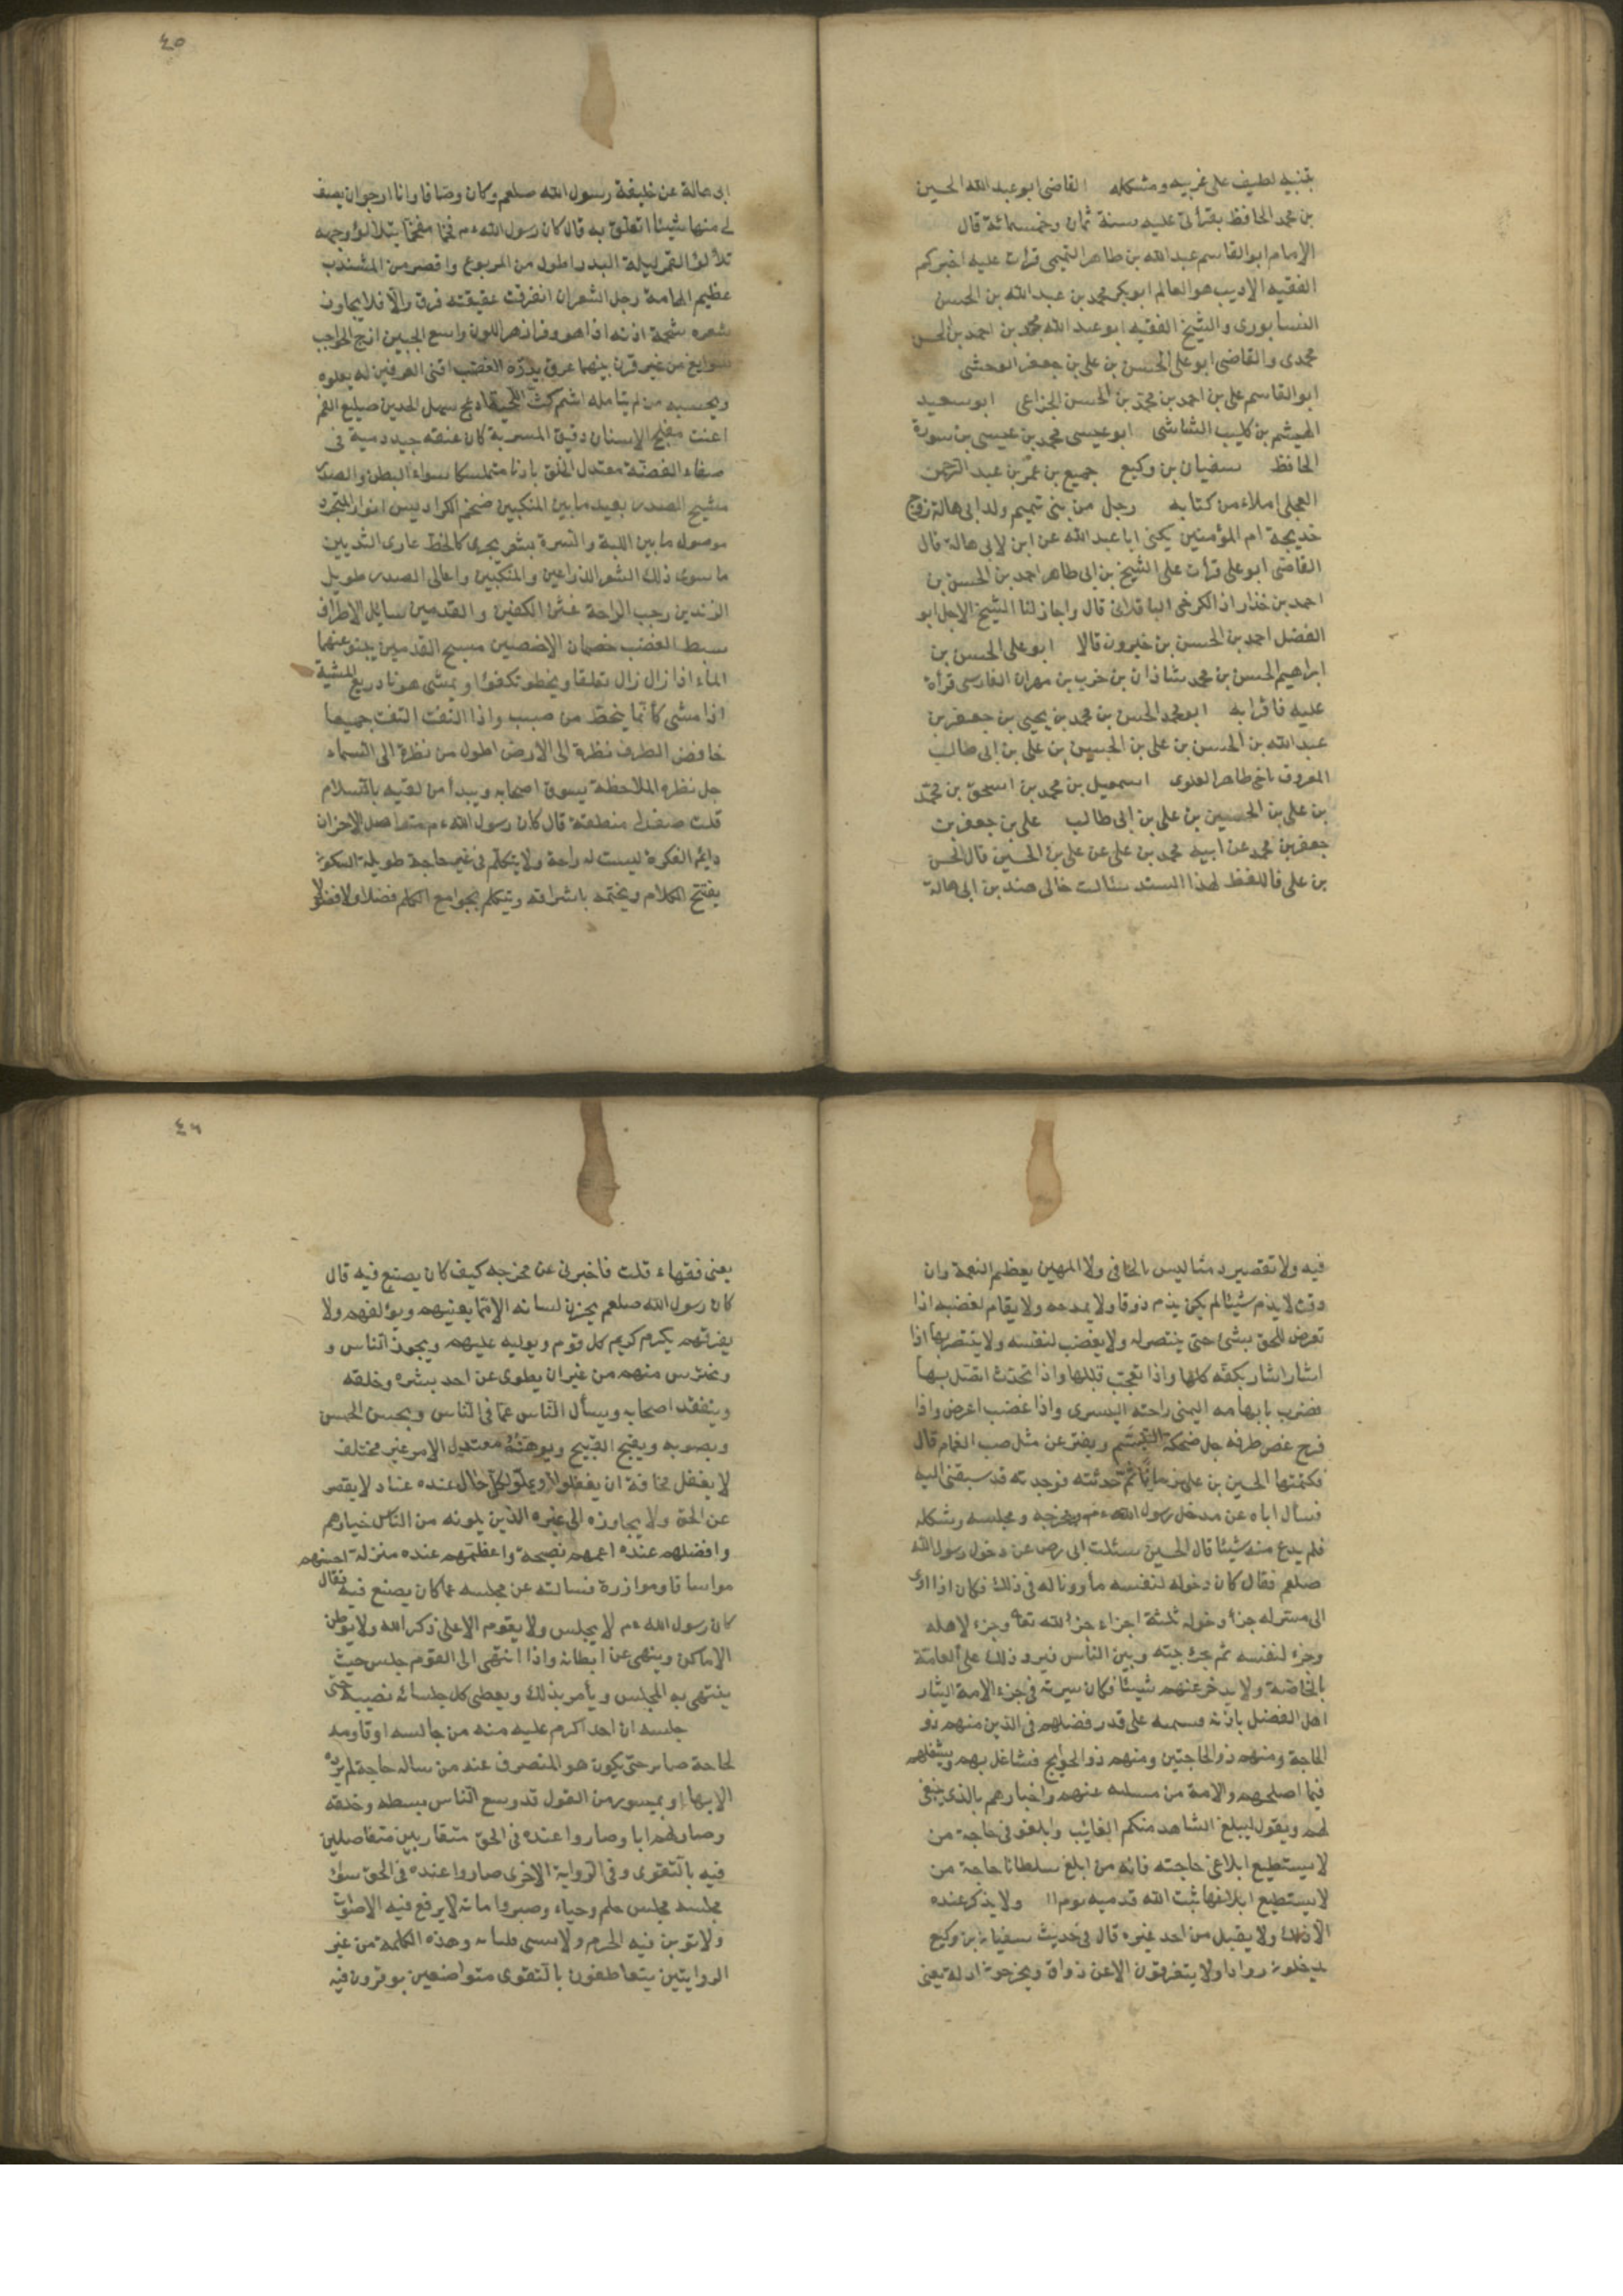 بتنبيه لطيف على غريبه ومشكله القاضى ابو عبد الله الحسين
بن محمد الحافظ بقرأتى عليه سنة ثمان وخمسمائة قال
الامام ابو القاسم عبد الله بن طاهر التميمى قرأت عليه اخبركم
الفقيه الاديب هو العالم ابو بكر محمد بن عبد الله بن الحسن
النسابورى والشيخ الفقيه ابو عبد الله محمد بن احمد بن الحسن
محمدى والقاضى ابو على الحسن بن على بن جعفر الوحشى
ابو القاسم على بن احمد بن محمد بن الحسن الخزاعى ابو سعيد
الهيثم بن كليب الشاشى ابو عيسى محمد بن عيسى بن سورة
الحافظ سفيان بن وكيع جميع بن عمر بن عبد الرحمن
العجلى املاء من كتابه رجل من بنى تميم ولد ابى هالة زوج
خديجة ام المؤمنين يكنى ابا عبد الله عن ابن لابى هالة قال
القاضى ابو على قرأت على الشيخ بن ابى طاهر احمد بن الحسن بن
احمد بن خذاراذ الكرخى الباقلانى قال واجاز لنا الشيخ الاجل ابو
الفضل احمد بن الحسن بن خيرون قالا ابو على الحسن بن
ابراهيم الحسن بن محمد شاذان بن خرب بن مهران الفارسى قرأة
عليه فاقرا به ابو محمد الحسن بن محمد بن يحيى بن جعفر بن
عبد الله بن الحسن بن على بن الحسين بن على بن ابى طالب
المعروف باخى طاهر العلوى اسمعيل بن محمد بن اسحق بن محمد
بن على بن الحسين بن على بن ابى طالب على بن جعفر بن
جعفر بن محمد عن ابيه محمد بن على عن على بن الحسين قال الحسن
بن على فاللفظ لهذا السند سئالت خالى هند بن ابى هالة
٤٥
ابى هالة عن خليفة رسول الله صلعم وكان وصافا وانا ارجوا ان يصف
لى منها شيئا اتعلق به قال كان رسول الله ءم فخما مفخما يتلألؤ وجهه
تلألؤ القمر ليلة البدر اطول من المربوع واقصر من المشذب
عظيم الهامة رجل الشعر ان انفرقت عقيقته فرق والا فلا يجاوز
شعره شحمة اذنه اذا هو وفر ازهر اللون واسع الجبين ازج الحواجب
سوابغ من غير قرن بينهما عرق يدره الغضب اقنى العرنين له يعلوه
ويحسبه من لم يتأمله اشم كث اللحية ادعج سهل الخدين ضليع الفم
اعنت مفلج الاسنان دقيق المسربة كان عنقه جيد دمية فى
صفاء الفضة معتدل الخلق بادنا متماسكا سواء البطن والصدر
مشيح الصدر بعيد ما بين المنكبين ضخم الكراديس انوار المتجرد
موصول ما بين اللبة والسرة بشعر يجرى كالخط عارى الثديين
ما سوى ذلك الشعر الذراعين والمنكبين واعالى الصدر طويل
الزندين رحب الراحة غشن الكفين والقدمين سايل الاطراف
سبط العضب خصمان الاخمصين مسيح القدمين ينبو عنهما
الماء اذا زال زال تعلقا ويخطو تكفؤا ويمشى هونا ذريع المشية
اذا مشى كأنما ينحط من صبب واذا التفت التفت جميعا
خافض الطرف نظرة الى الارض اطول من نظرة الى السماء
جل نظره الملاحظة يسوق اصحابه ويبدأ من لقيه بالسلام
قلت صف لى منطقة قال كان رسول الله ءم متواصل الاحزان
دايم الفكرة ليست له راحة ولا يتكلم فى غير حاجة طويلة السكوت
يفتتح الكلام ويختمه باشراقه ويتكلم بجوامع الكلم فضلا ولا فضول
فيه ولا تقصير دمثا ليس بالجافى ولا المهين يعظم النعمة وان
دقت لا يذم شيئا لم يكن يذم ذوقا ولا يمدحه ولا يقام لغضبه اذا
تعرض للحق بشئ حتى ينتصر له ولا يغضب لنفسه ولا ينتصر بها اذا
اشار اشار بكفه كلها واذا تعجب قلبها واذا تحدث اتصل بها
فضرب بابهامه اليمنى راحته اليسرى واذا غضب اعرض واذا
فرح غض طرفه جل ضحكه التبسم ويفتر عن مثل حب الغمام قال
فكتمتها الحسين بن على زمانا ثم حدثته فوجدته قد سبقنى اليه
فسأل اباه عن مدخل رسول الله ءم ومخرجه ومجلسه وشكله
فلم يدع منه شيئا قال الحسين سئلت ابى رض عن دخول رسول الله
صلعم فقال كان دخوله لنفسه مأذونا له فى ذلك فكان اذا اوى
الى منزله جزأ دخوله ثلثة اجزاء جزأ لله تعا وجزء لاهله
وجزء لنفسه ثم جزء جزئه وبين الناس فيرد ذلك على العامة
بالخاصة ولا يدخر عنهم شيئا فكان سيرته فى جزء الامة ايثار
اهل الفضل باذنه قسمه على قدر فضلهم فى الدين منهم ذو
الحاجة ومنهم ذو الحاجتين ومنهم ذو الحوايج فتشاغل بهم ويشغلهم
فيما اصلحهم والامة من مسئله عنهم واخبارهم بالذى ينبغى
لهم ويقول ليبلغ الشاهد منكم الغائب وابلغونى حاجة من
لا يستطيع ابلاغى حاجته فانه من ابلغ سلطانا حاجة من
لا يستطيع ابلاغها ثبت الله قدميه يوم ولا يذكر عنده
الا ذلك ولا يقبل من احد غيره قال فى حديث سفيان بن وكيع
يدخلون روادا ولا يتفرقون الا عن ذواق ويخرجون ادلة يعنى
٤٦
يعنى فقهاء قلت فاخبرنى عن مخرجه كيف كان يصنع فيه قال
كان رسول الله صلعم يخزن لسانه الا مما يعنيهم ويؤلفهم ولا
يفرقهم يكرم كريم كل قوم ويوليه عليهم ويحذر الناس و
ويحترس منهم من غير ان يطوى عن احد بشره وخلقه
ويتفقد اصحابه ويسأل الناس عما فى الناس ويحسن الحسن
ويصوبه ويقبح القبيح ويوهنه معتدل الامر غير مختلف
لا يغفل مخافة ان يغفلوا او يملوا لكل حال عنده عتاد لا يقصر
عن الحق ولا يجاوزه الى غيره الذين يلونه من الناس خيارهم
وافضلهم عنده اعمهم نصيحة واعظمهم عنده منزلة احسنهم
مواساة وموازرة فسالته عن مجلسه عما كان يصنع فيه فقال
كان رسول الله ءم لا يجلس ولا يقوم الا على ذكر الله ولا يوطن
الاماكن وينهى عن ايطانه واذا انتهى الى القوم جلس حيث
ينتهى به المجلس ويأمر بذلك ويعطى كل جلسائه نصيبه حتى
جلسه ان احدا كرم عليه منه من جالسه او قاومه
لحاجة صابر حتى يكون هو المنصرف عند من ساله حاجة لم يرده
الا بها او بميسور من القول قد وسع الناس بسطه وخلقه
وصار لهم ابا وصاروا عنده فى الحق متقاربين متفاضلين
فيه بالتقوى وفى الرواية الاخرى صاروا عنده فى الحق سواء
مجلسه مجلس حلم وحياء وصبر وامانة لا يرفع فيه الاصوات
ولا توبن فيه الحرم ولا فلتاته وهذه الكلمة من غير
الروايتين يتعاطفون بالتقوى متواضعين يوقرون فيه